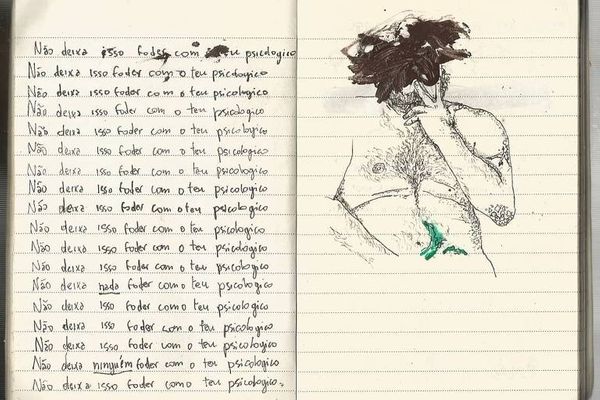 Não deixa isso foder com teu psicologico
Não deixa isso foder com o teu psicologico
Não deixa isso foder com o teu psicologico
Não deixa isso foder com o teu psicologico
Não deixa isso foder com o teu psicologico
Não deixa isso foder com o teu psicologico
Não deixa isso foder com o teu psicologico
Não deixa isso foder com o teu psicologico
Não deixa isso foder com o teu psicologico
Não deixa isso foder com o teu psicologico
Não deixa isso foder com o teu psicologico
Não deixa isso foder com o teu psicologico
Não deixa nada foder com o teu psicologico
Não deixa isso foder com o teu psicologico
Não deixa isso foder com o teu psicologico
Não deixa isso foder com o teu psicologico
Não deixa ninguém foder com o teu psicologico
Não deixa isso foder com o teu psicologico.